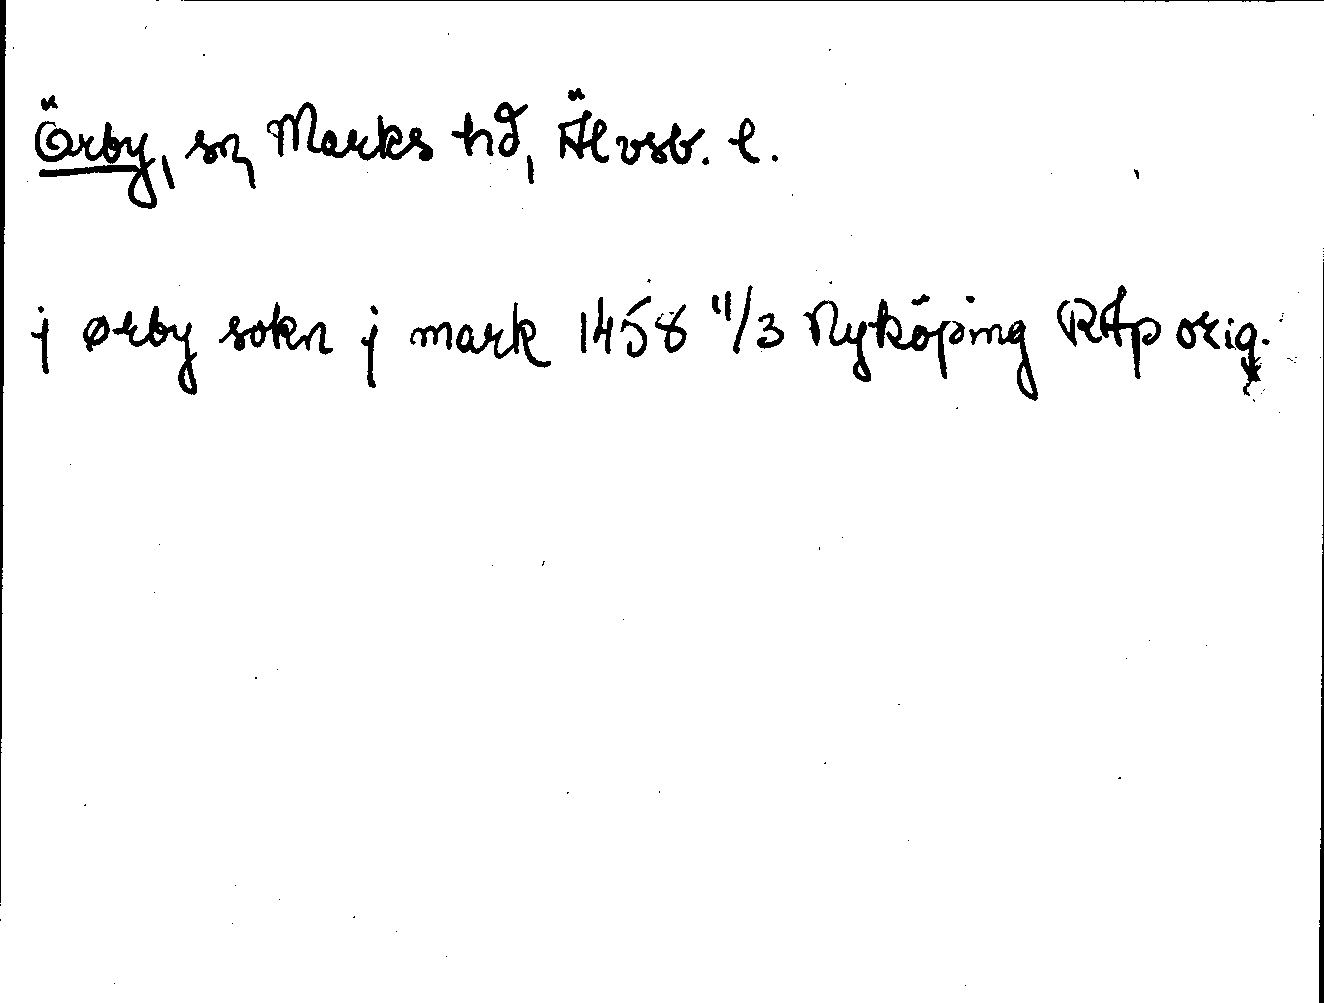 Örby, sn, Marks hd, Älvsb. l.
j ørby sokn j mark 1458 11/3 Nyköping RAp orig.